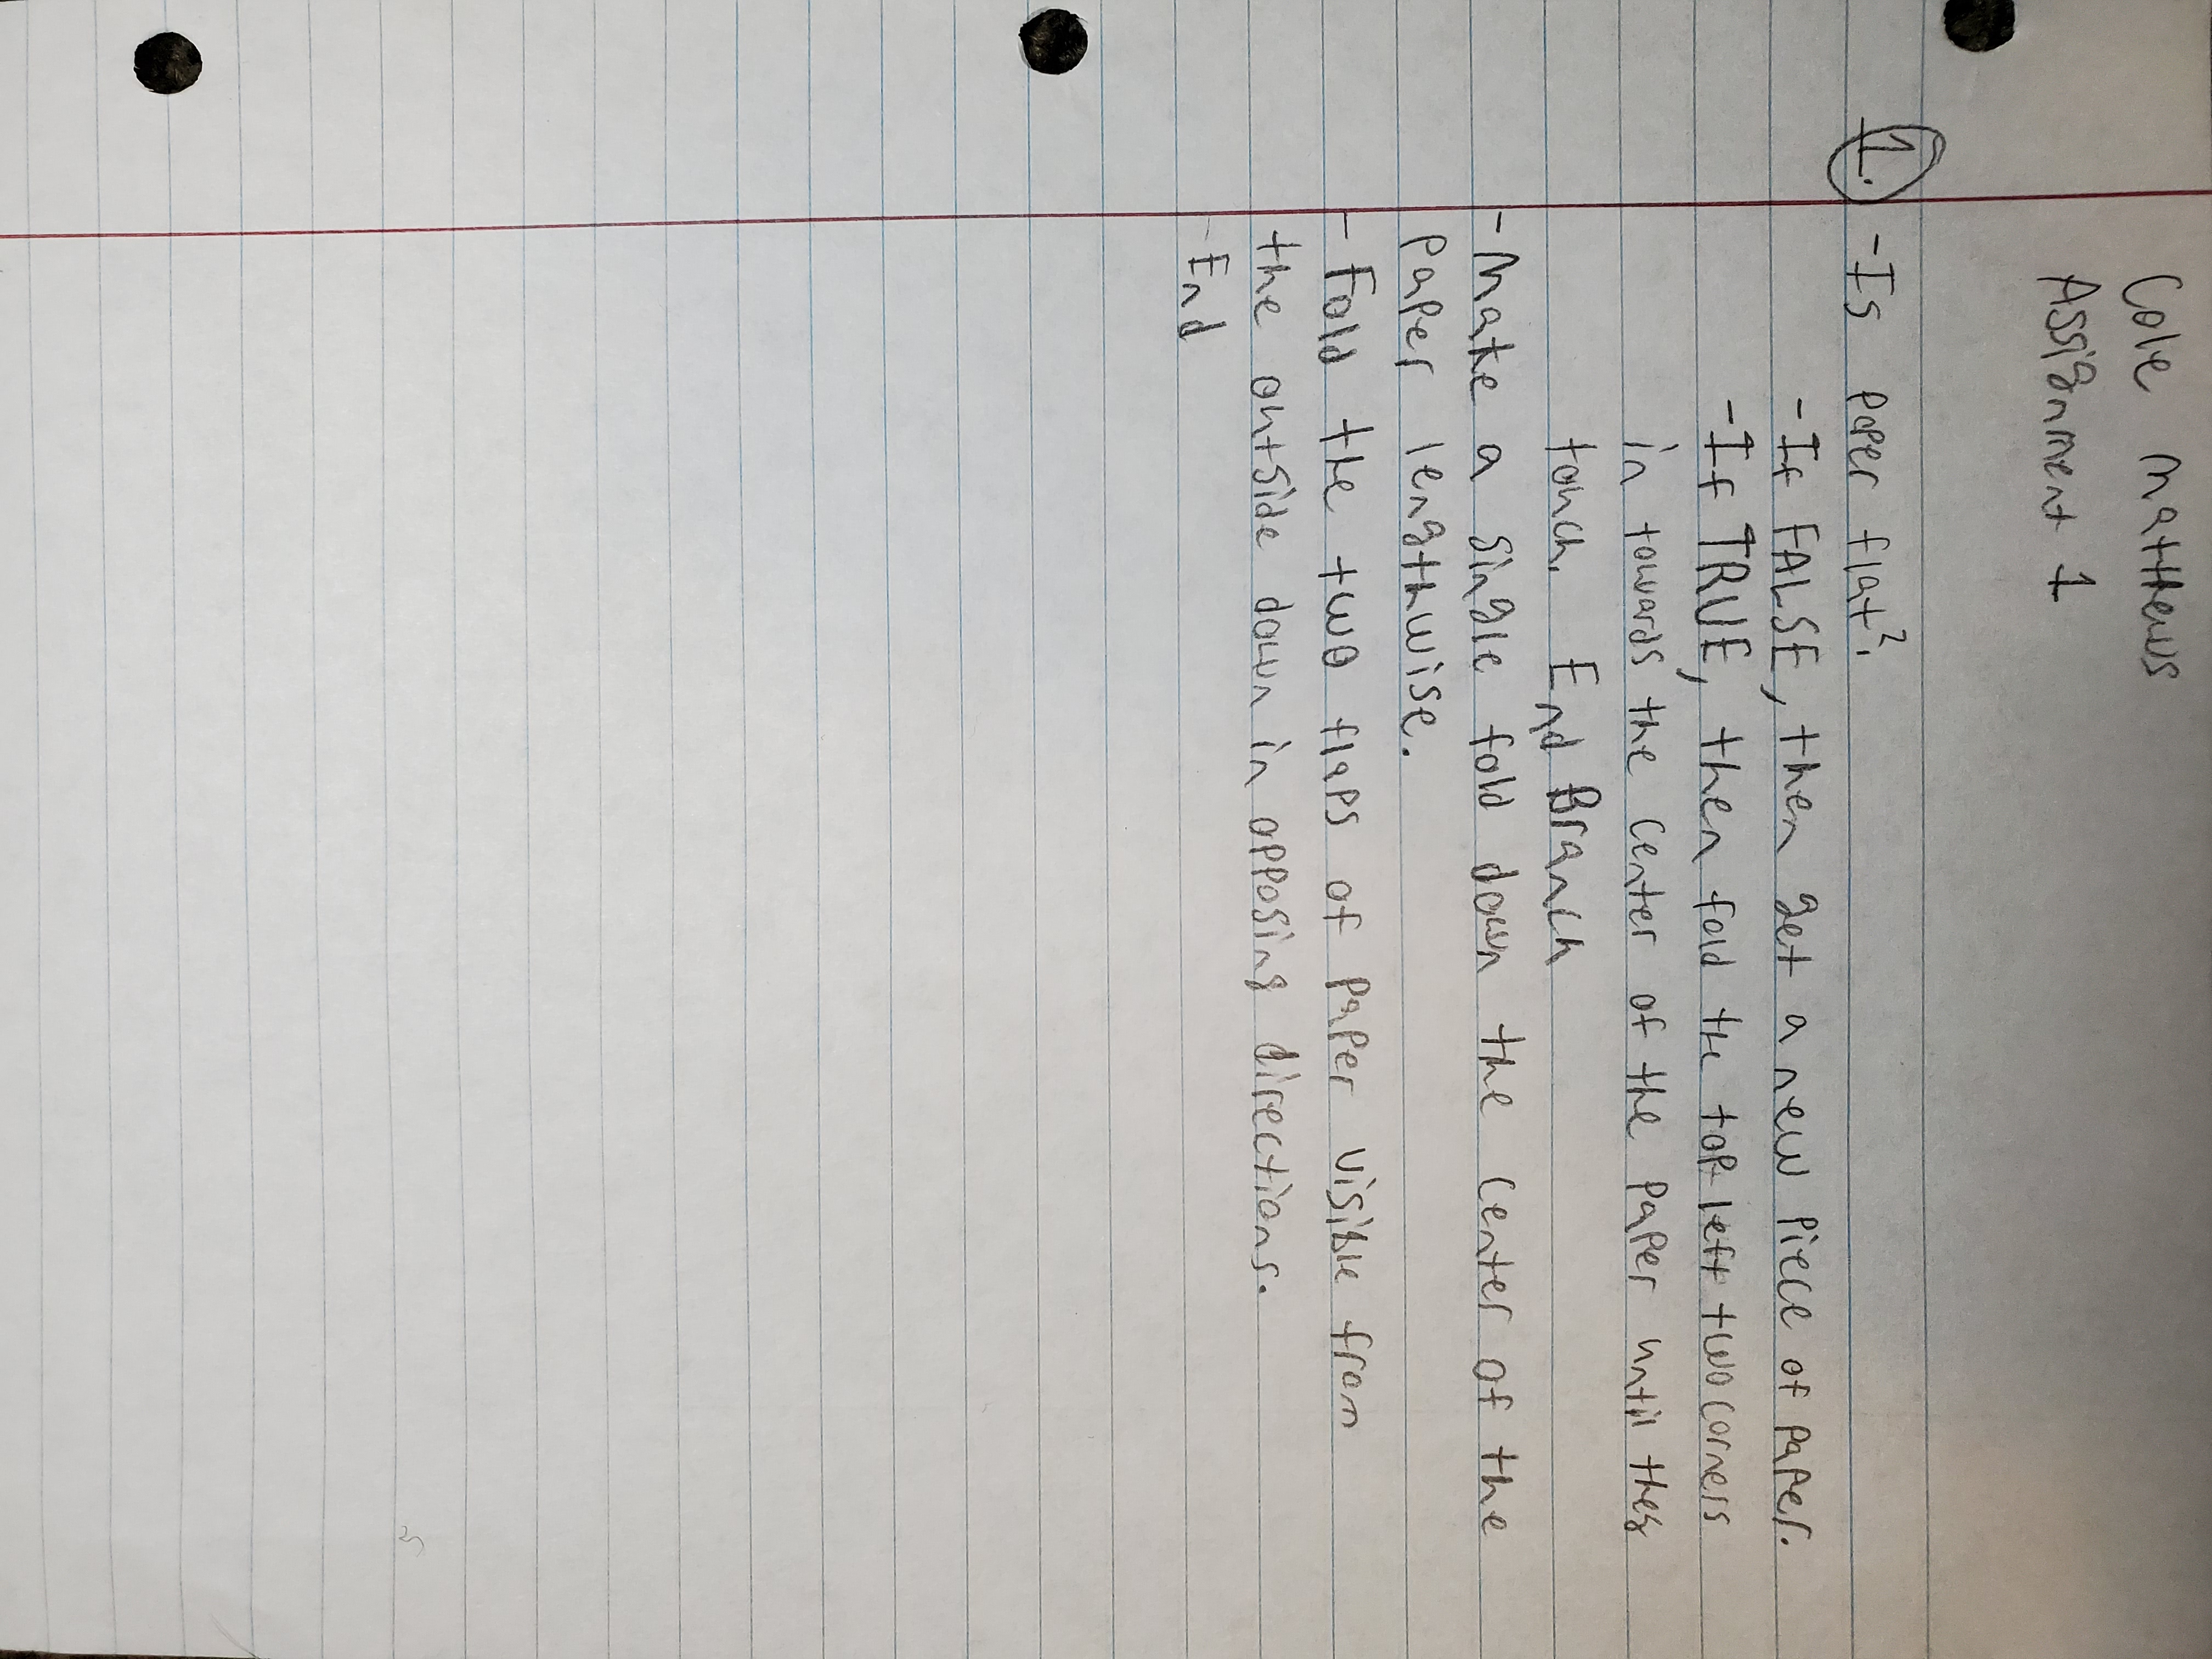 Cole Matthews
Assignment 1
1.
- Is Paper flat?
- If FALSE, then get a new Piece of Paper.
- If TRUE, then fold the top left two corners
in towards the center of the Paper until they
touch. End Branch
- Make a single fold down the center of the
Paper lengthwise.
- Fold the two flaps of Paper visible from
the outside down in opposing directions.
- End